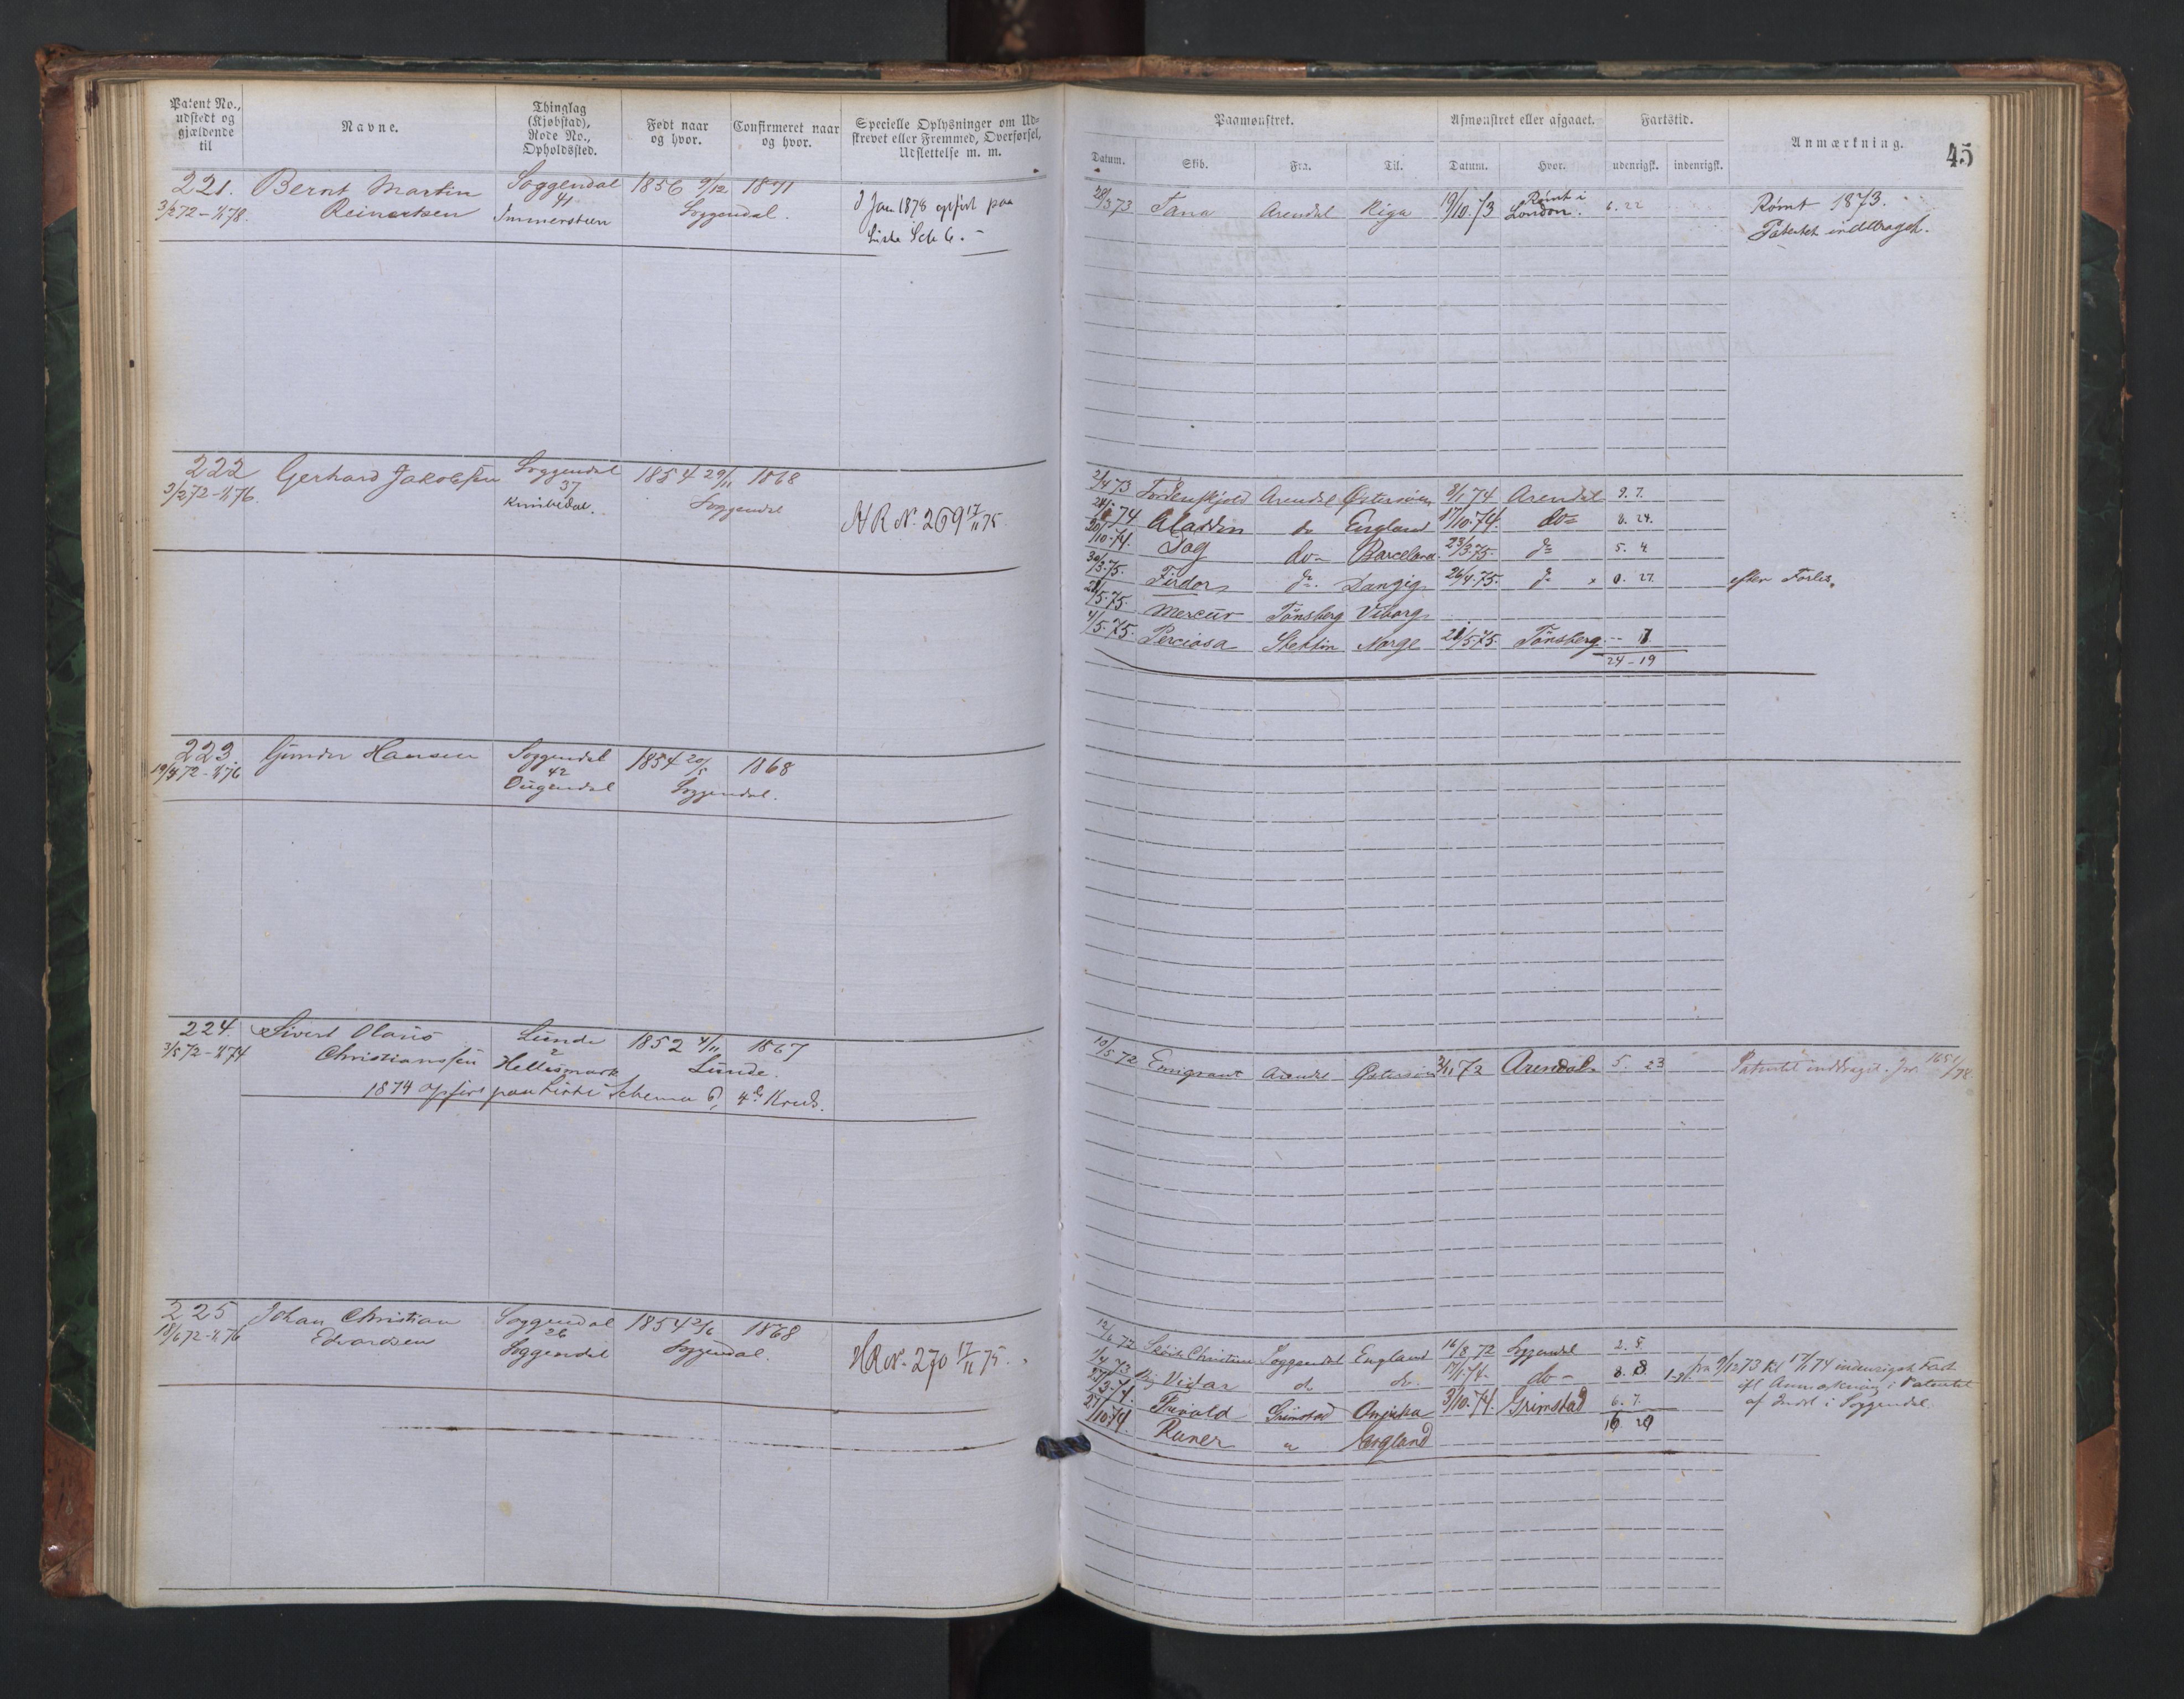 Patent No., udstedt og gjældende til
Navne.
Thinglag (Kjøbstad), Rode No., Opholdssted.
Født naar og hvor.
Confirmeret naar og hvor.
Specielle Oplysninger om Udskrevet eller Fremmed, Overførsel, Udslettelse m. m.
221. Bernt Martin Soggendal 1856 9/12 1871
3/2 72 - 1/1 78. Reinertsen 41 Soggendal.
Immersteen
I Jan 1878 opført paa
Liste Sch 6. -
222 Gerhard Jakobsen Soggendal 1854 29/11 1868
3/2 72 - 1/1 76. 37 Soggendal
HR No. 269 17/11 75.
223. Hansen Soggendal 1854 20/5 1868
19/4 72 - 1/1 76 42 Soggendal.
224. Sivert Olaus Lunde 1852 4/11 1867
3/5 72 - 1/1 74 Christianssen 2 Lunde.
Hellesmark
1874 opført paa Liste Schema 6, 4de Kreds.
225 Johan Christian Soggendal 1854 2/6 1868
18/6 72 - 1/1 76 Edvardsen 26 Soggendal.
Soggendal
HR No. 270 17/11 75.
45
Paamønstret.
Afmønstret eller afgaaet.
Fartstid.
Anmærkning.
Datum. Skib. Fra. Til. Datum. Hvor. udenrigsk. indenrigsk.
28/3 73 Tana Arendal Riga 19/10. 73 Rømt i London. 6. 22 Rømt 1873.
Patentet inddraget.
2/4 73 Tordenskjold Arendal Østersøen 8/1 74 Arendal 9. 7.
24/1 74 Aladdin do England 17/10. 74. do 8. 24.
20/10. 74. Dag do Barcelona 23/3. 75. do 5. 4
30/3. 75. do. Danzig 26/4. 75. do x 0. 27. efter Forlis.
Mercur Tønsberg Viborg
4/5. 75. Stettin Norge 21/5. 75. Tønsberg -- 17.
24 - 19
10/5 72 Emigrant Arendal Østersøen 2/11 72 Arendal 5. 23 Patentet inddraget. Jr. 165 1/78.
12/6 72 Christine Soggendal England 16/8 72 Soggendal 2. 5.
1/4 73 Vidar do do 17/1. 74. do 8. 8 fra 9/12 73 til 17/1 74 indenrigsk Fart
ifl Anmærkning i Patentet
af i Soggendal.
Grimstad 3/10. 74. Grimstad 6. 7.
27/10. 74. Runer " England 16. 20